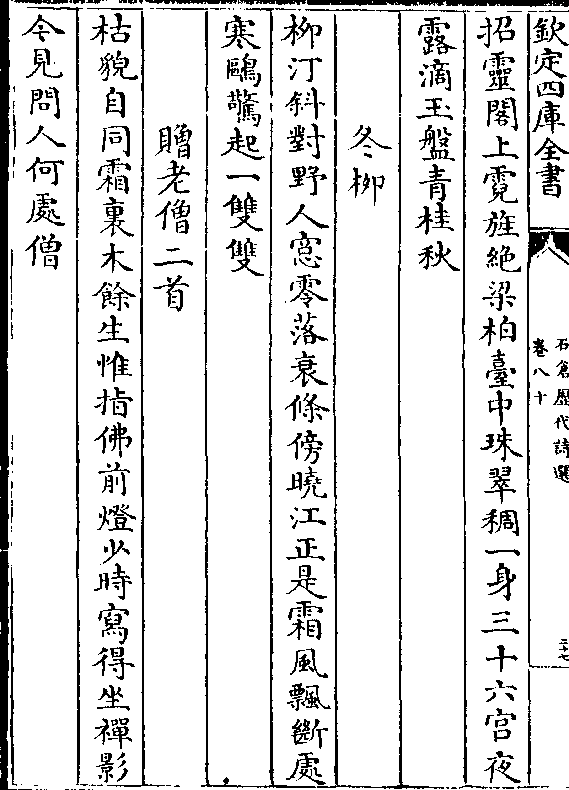 欽定四庫全書
石倉歷代詩選
卷八十
二十七
招靈閣上霓旌絶梁柏臺中珠翠稠一身三十六宫夜
露滴玉盤青桂秋
冬栁
栁汀斜對野人窓零落衰條傍曉江正是霜風飄斷處
寒鷗驚起一雙雙
贈老僧二首
枯貌自同霜裏木餘生惟指佛前燈少時寫得坐禪影
今見問人何處僧